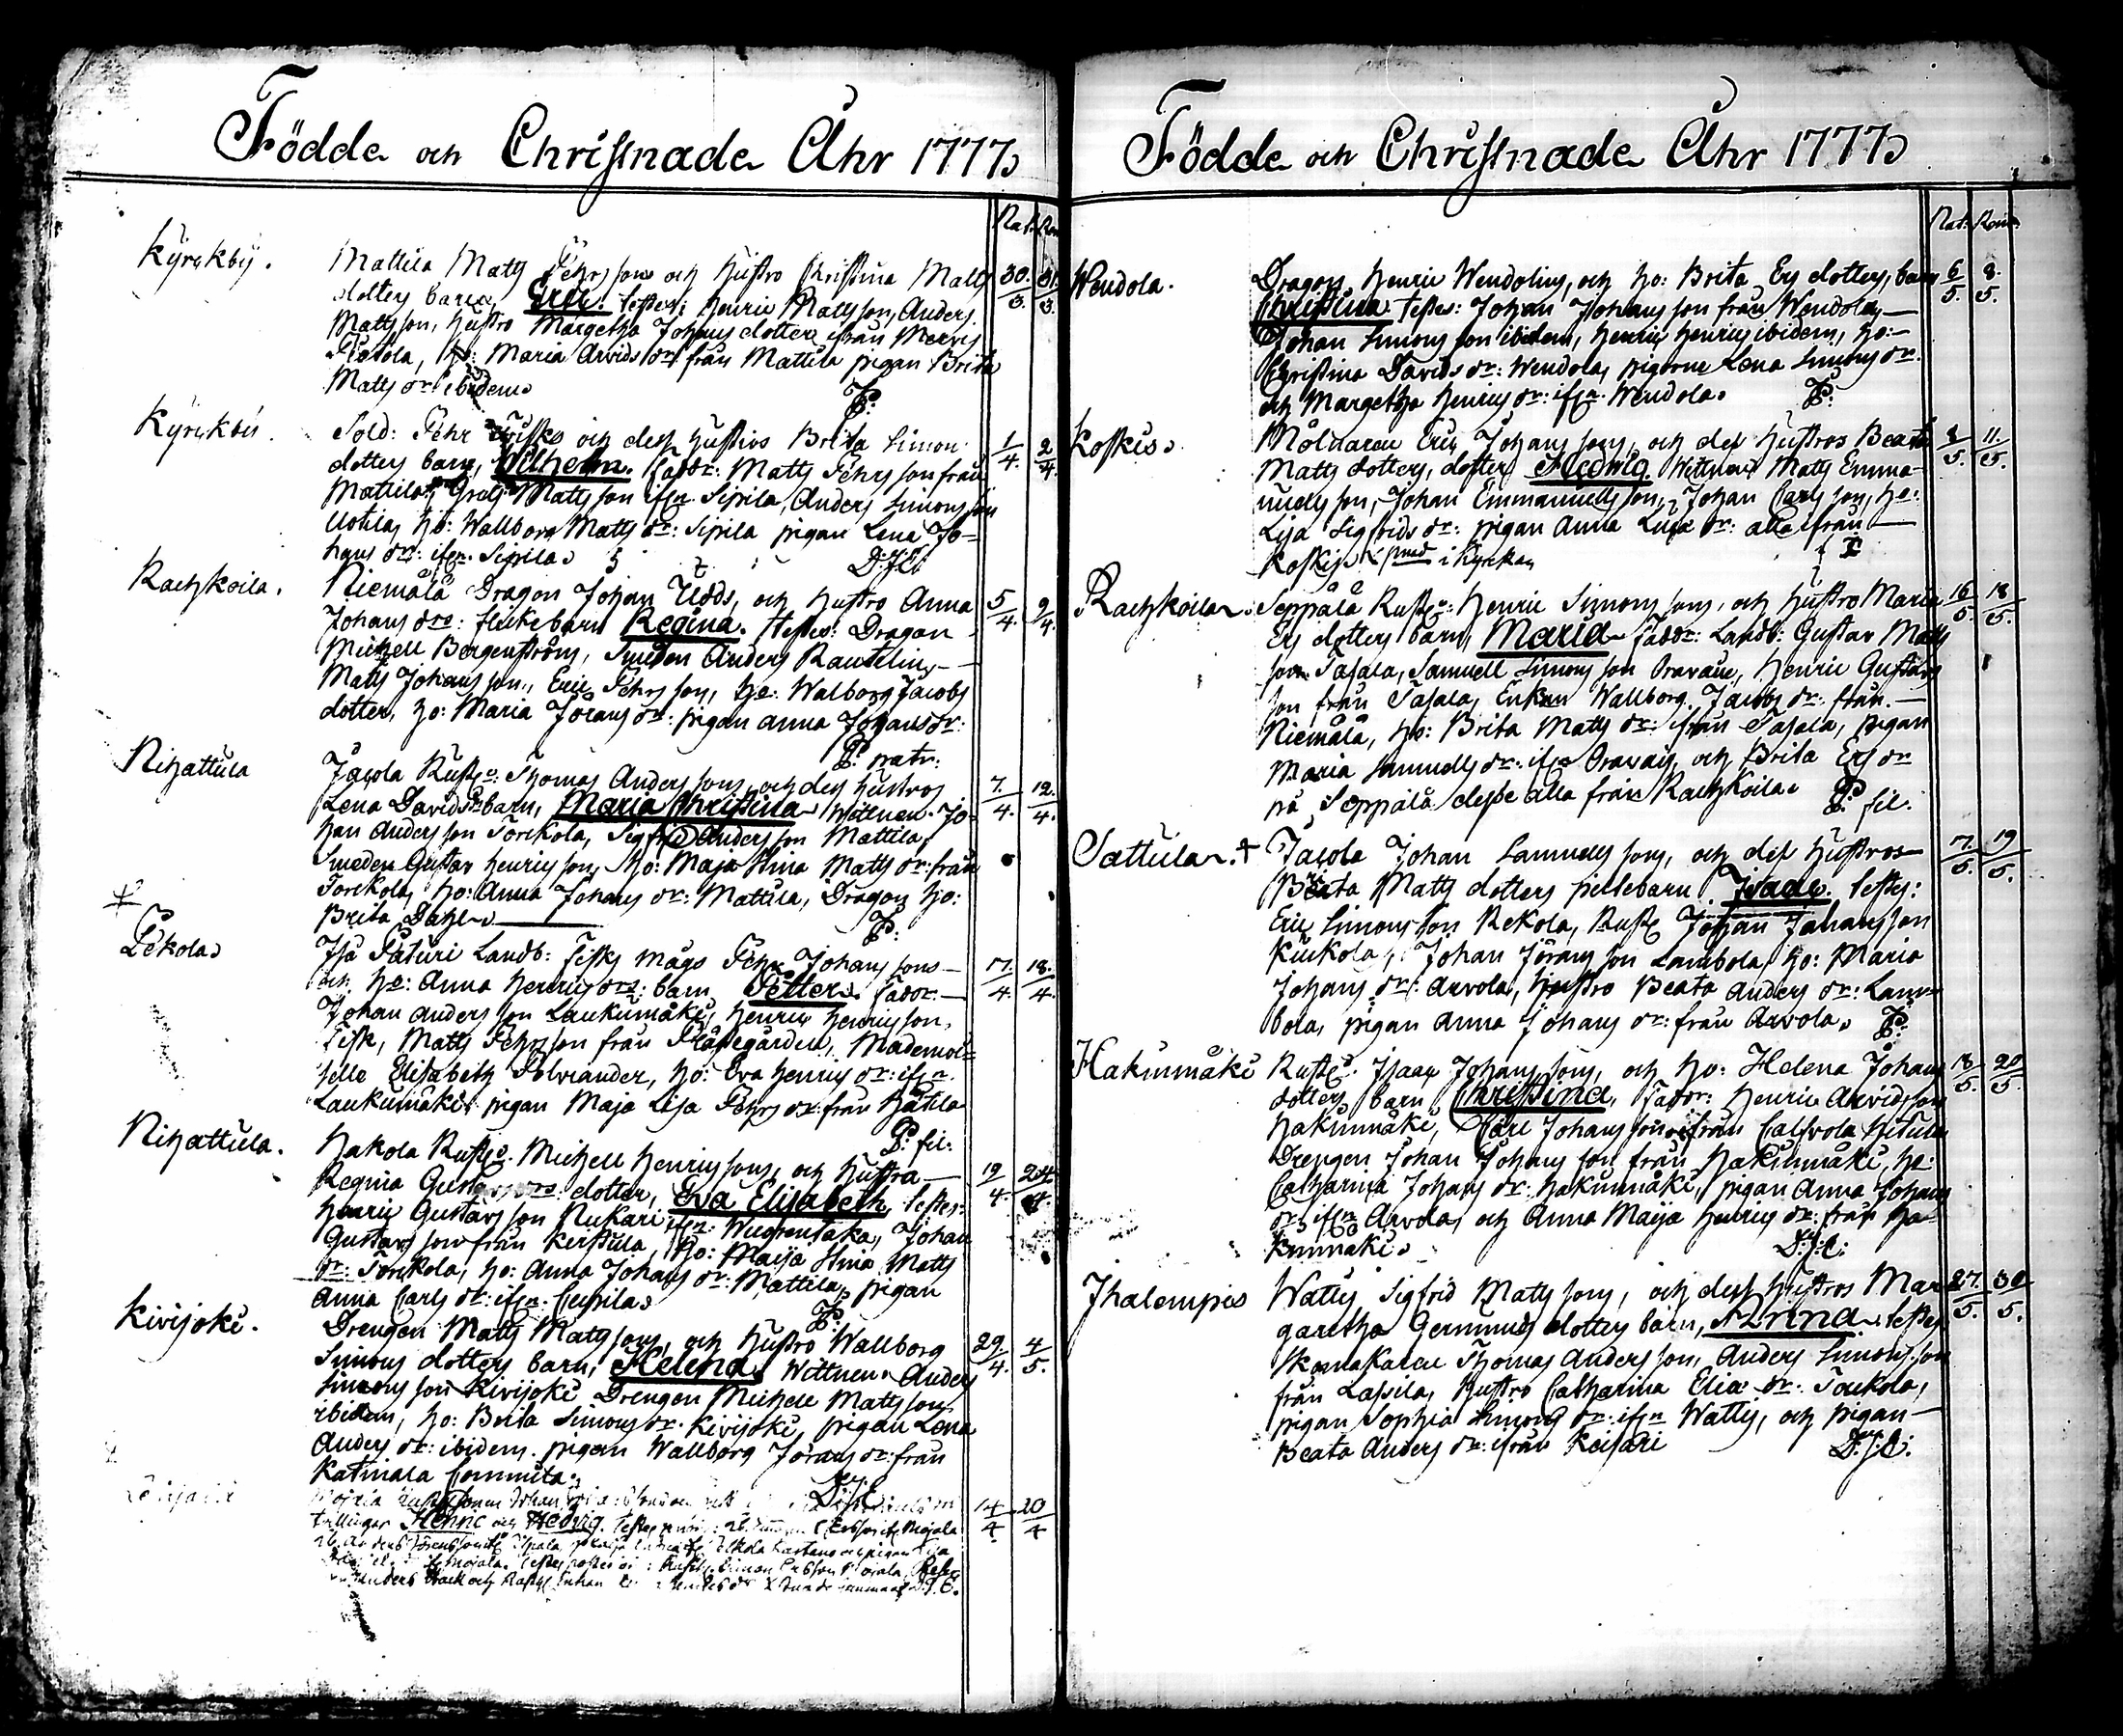 Födde och Christnade Åhr 1777
Nat. Ren.
Kyrkby. Mattila Matts Pehrsson och Hustro Christina Matts 30/3. 31/3.
dotters barn, Eric. testes: Henric Mattsson, Anders
Mattsson, Hustro Margetha Johans dotter ifrån Mervis
Pietola, ho: Maria Arvids dr från Mattila pigan Brita
Matts dr ibidem P:
Kyrkby. Sold: Pehr Frisks och dess Hustros Brita Simons 1/4. 2/4.
dotters barn, Wilhelm. faddr: Matts Pehrsson från
Mattila, Grels Mattsson ifrn Sipila, Anders Simonsson
Uotila, ho: Wallborg Matts dr: Sipila pigan Lena Jo=
hans dr: ifrn. Sipila. D:J:C:
Rachkoila. Niemälä Dragon Johan Udds, och Hustro Anna 5/4. 9/4.
Johans drs: flickebarn Regina. testes: Dragon
Michell Bergenström, Smeden Anders Rautelin,
Matts Johansson, Eric Pehrsson, ho: Walborg Jacobs
dotter, ho: Maria Jörans dr: pigan Anna Johans dr:
P: patr:
Nihattula Jacola Rusth: Thomas Anderssons, och dess hustros 7/4. 12/4.
Lena Davids drs barn, Maria Christina Wittnen. Jo=
han Andersson Torckola, Sigfrid Andersson Mattila,
Smeden Gustav Henricsson, ho: Maja Stina Matts dr: från
Torckola, ho: Anna Johans dr: Mattila, Dragon ho:
Brita Dahl P:
Pekola. Iso Paturi Landb: Fisks mågs Pehr Johanssons 17/4. 18/4.
och ho: Anna Henrics drs: barn Petter. faddr:
Johan Andersson Laukumäki, Henric Henricsson,
Fisk, Matts Pehrsson från Prästegården, Mademoi=
selle Elisabeth Polviander, ho: Eva Henrics dr: ifrn.
Laukumäki, pigan Maja Lisa Pehrs dr: från Hätila
P: fil:
Nihattula. Hakola Rusth. Michell Henricssons, och Hustro 19/4 24/4
Regina Gustavs dotter, Eva Elisabeth, testes:
Henric Gustavsson Nukari, ifrn: Wuorentaka, Johan
Gustavsson från Kerstula, ho: Maija Stina Matts
dr: Torckola, ho: Anna Johans dr: Mattila, pigan
Anna Carls dr: ifrn: P:
Kirisoki. Drengen Matts Mattssons, och Hustro Wallborg 29/4. 4/5.
Simons dotters barn, Helena, Wittnen: Anders
Simonsson Kirisoki Drengen Michell Mattsson
ibidem, ho: Brita Simons dr: Kirisoki, pigan Lena
Anders dr: ibidem. pigan Wallborg Jörans dr: från
Katinala Commita. D:J:C:
14/4 20/4
tvillingar Henric och Hedvig. testes
Födde och Christnade Åhr 1777
Nat. Ren.
Wendola. Dragon Henric Wendolins, och ho: Brita Ers dotters, barn 6/5. 8/5.
Christina. testes: Johan Johansson från Wendola,
Johan Simonsson ibidem, Henric Henrics ibidem, ho:
Christina Davids dr: Wendola, pigorne Lena Simons dr:
och Margetha Henrics dr: ifrn. Wendola. P:
Koskis. Mölnaren Eric Johanssons, och dess Hustros Beata 8/5. 11/5.
Matts dotters, dotter Hedwig. Wittnen Matts Emma=
nuellsson, Johan Emmanuellsson, Johan Carlsson, ho:
Lisa Sigfrids dr: pigan Anna dr: alla ifrån
Koskis i Kyrckan
Rachkoila. Seppälä Rusth: Henric Simonssons, och Hustro Maria 16/5. 18/5.
Ers dotters barn, Maria faddr: Landb: Gustav Matts
son Pasala, Samuell Simonsson Oravais, Henric Gustavs
son från Pasala, Enkan Wallborg Jacobs dr: från
Niemälä, ho: Brita Matts dr: ifrån Pasala, pigan
Maria Samuells dr: ifrn Oravais, och Brita Ers dr
på Seppälä desse alla från Rachkoila. P: fil:
Sattula. + Jacola Johan Samuellssons, och dess Hustros 17/5. 19/5.
Beata Matts dotters piltebarn Isaac. testes:
Eric Simonsson Rekola, Rusth Johan Johansson
Kuckola, Johan Jöransson Lambola, ho: Maria
Johans dr: Arvola, Hustro Beata Anders dr: Lam=
bola, pigan Anna Johans dr: från Arvola. P:
Hakinmäki Rusth. Isaac Johanssons, och ho: Helena Johans 18/5. 20/5.
dotters barn Christina, faddr: Henric Arvidsson
Hakinmäki, Carl Johansson ifrån Calvola
Drengen Johan Johansson från Hakinmäki, ho:
Catharina Johans dr: Hakinmäki, pigan Anna Johans
dr: ifrn Arvola, och Anna Maija Henrics dr: från Ha=
kinmäki. D:J:C:
Ihalempis Watts Sigfrid Mattssons, och dess Hustros Mar 27/5. 30/5.
garetha Germunds dotters barn, Anna. testes
Skomakaren Thomas Andersson, Anders Simonsson
från Lassila, Hustro Catharina Elia dr: Torkola,
pigan Sophia Simons dr: ifrn Watts, och pigan
Beata Anders dr: ifrån Keisari D:J:C: